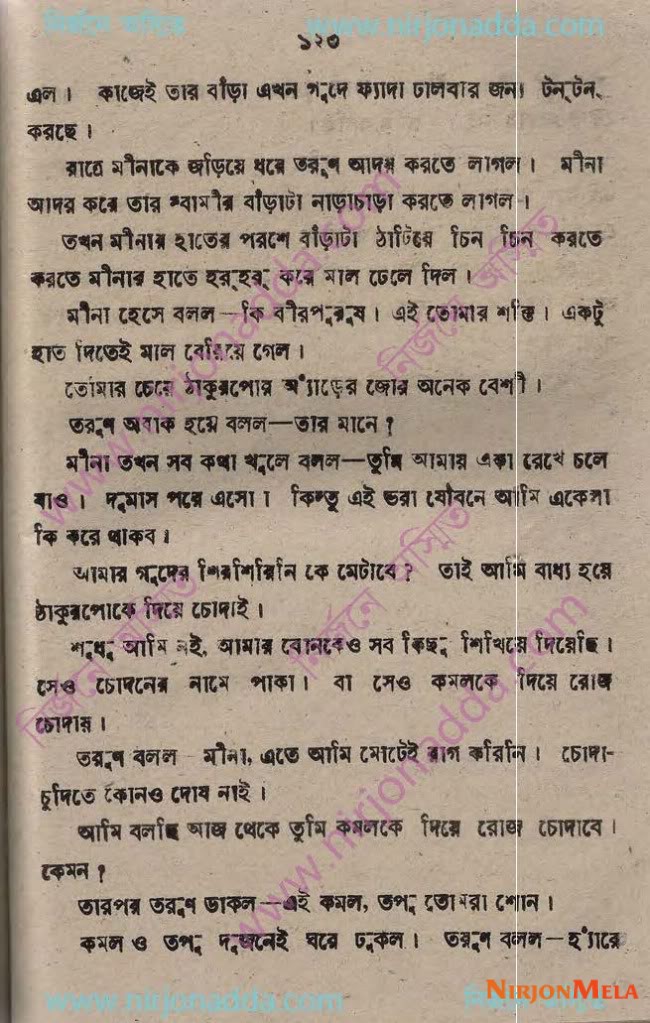 নির্জনে অস্মিত www.nirjonadda.com
১২৩
এল। কাজেই তার বাঁড়া এখন গুদে ফ্যাদা ঢালবার জন্য টনটন
করছে।
রাত্রে মীনাকে জড়িয়ে ধরে তরুণ আদর করতে লাগল। মীনা
আদর করে তার স্বামীর বাঁড়াটা নাড়াচাড়া করতে লাগল।
তখন মীনার হাতের পরশে বাঁড়াটা ঠাটিয়ে চিন চিন করতে
করতে মীনার হাতে হরহর করে মাল ঢেলে দিল।
মীনা হেসে বলল—কি বীরপুরুষ। এই তোমার শক্তি। একটু
হাত দিতেই মাল বেরিয়ে গেল।
তোমার চেয়ে ঠাকুরপোর ষ্যাঁড়ের জোর অনেক বেশী।
তরুণ অবাক হয়ে বলল—তার মানে?
মীনা তখন সব কথা খুলে বলল—তুমি আমায় একা রেখে চলে
যাও। দুমাস পরে এসো। কিন্তু এই ভরা যৌবনে আমি একেলা
কি করে থাকব।
আমার গুদের শিরশিরিনি কে মেটাবে? তাই আমি বাধ্য হয়ে
ঠাকুরপোকে দিয়ে চোদাই।
শুধু আমি নই, আমার বোনকেও সব কিছু শিখিয়ে দিয়েছি।
সেও চোদনের নামে পাকা। বা সেও কমলকে দিয়ে রোজ
চোদায়।
তরুণ বলল—মীনা, এতে আমি মোটেই রাগ করিনি। চোদা-
চুদিতে কোনও দোষ নাই।
আমি বলছি আজ থেকে তুমি কমলকে দিয়ে রোজ চোদাবে।
কেমন?
তারপর তরুণ ডাকল—এই কমল, তপু তোমরা শোন।
কমল ও তপু দুজনেই ঘরে ঢুকল। তরুণ বলল—হ্যাঁরে
NIRJONMELA
www.nirjonadda.com